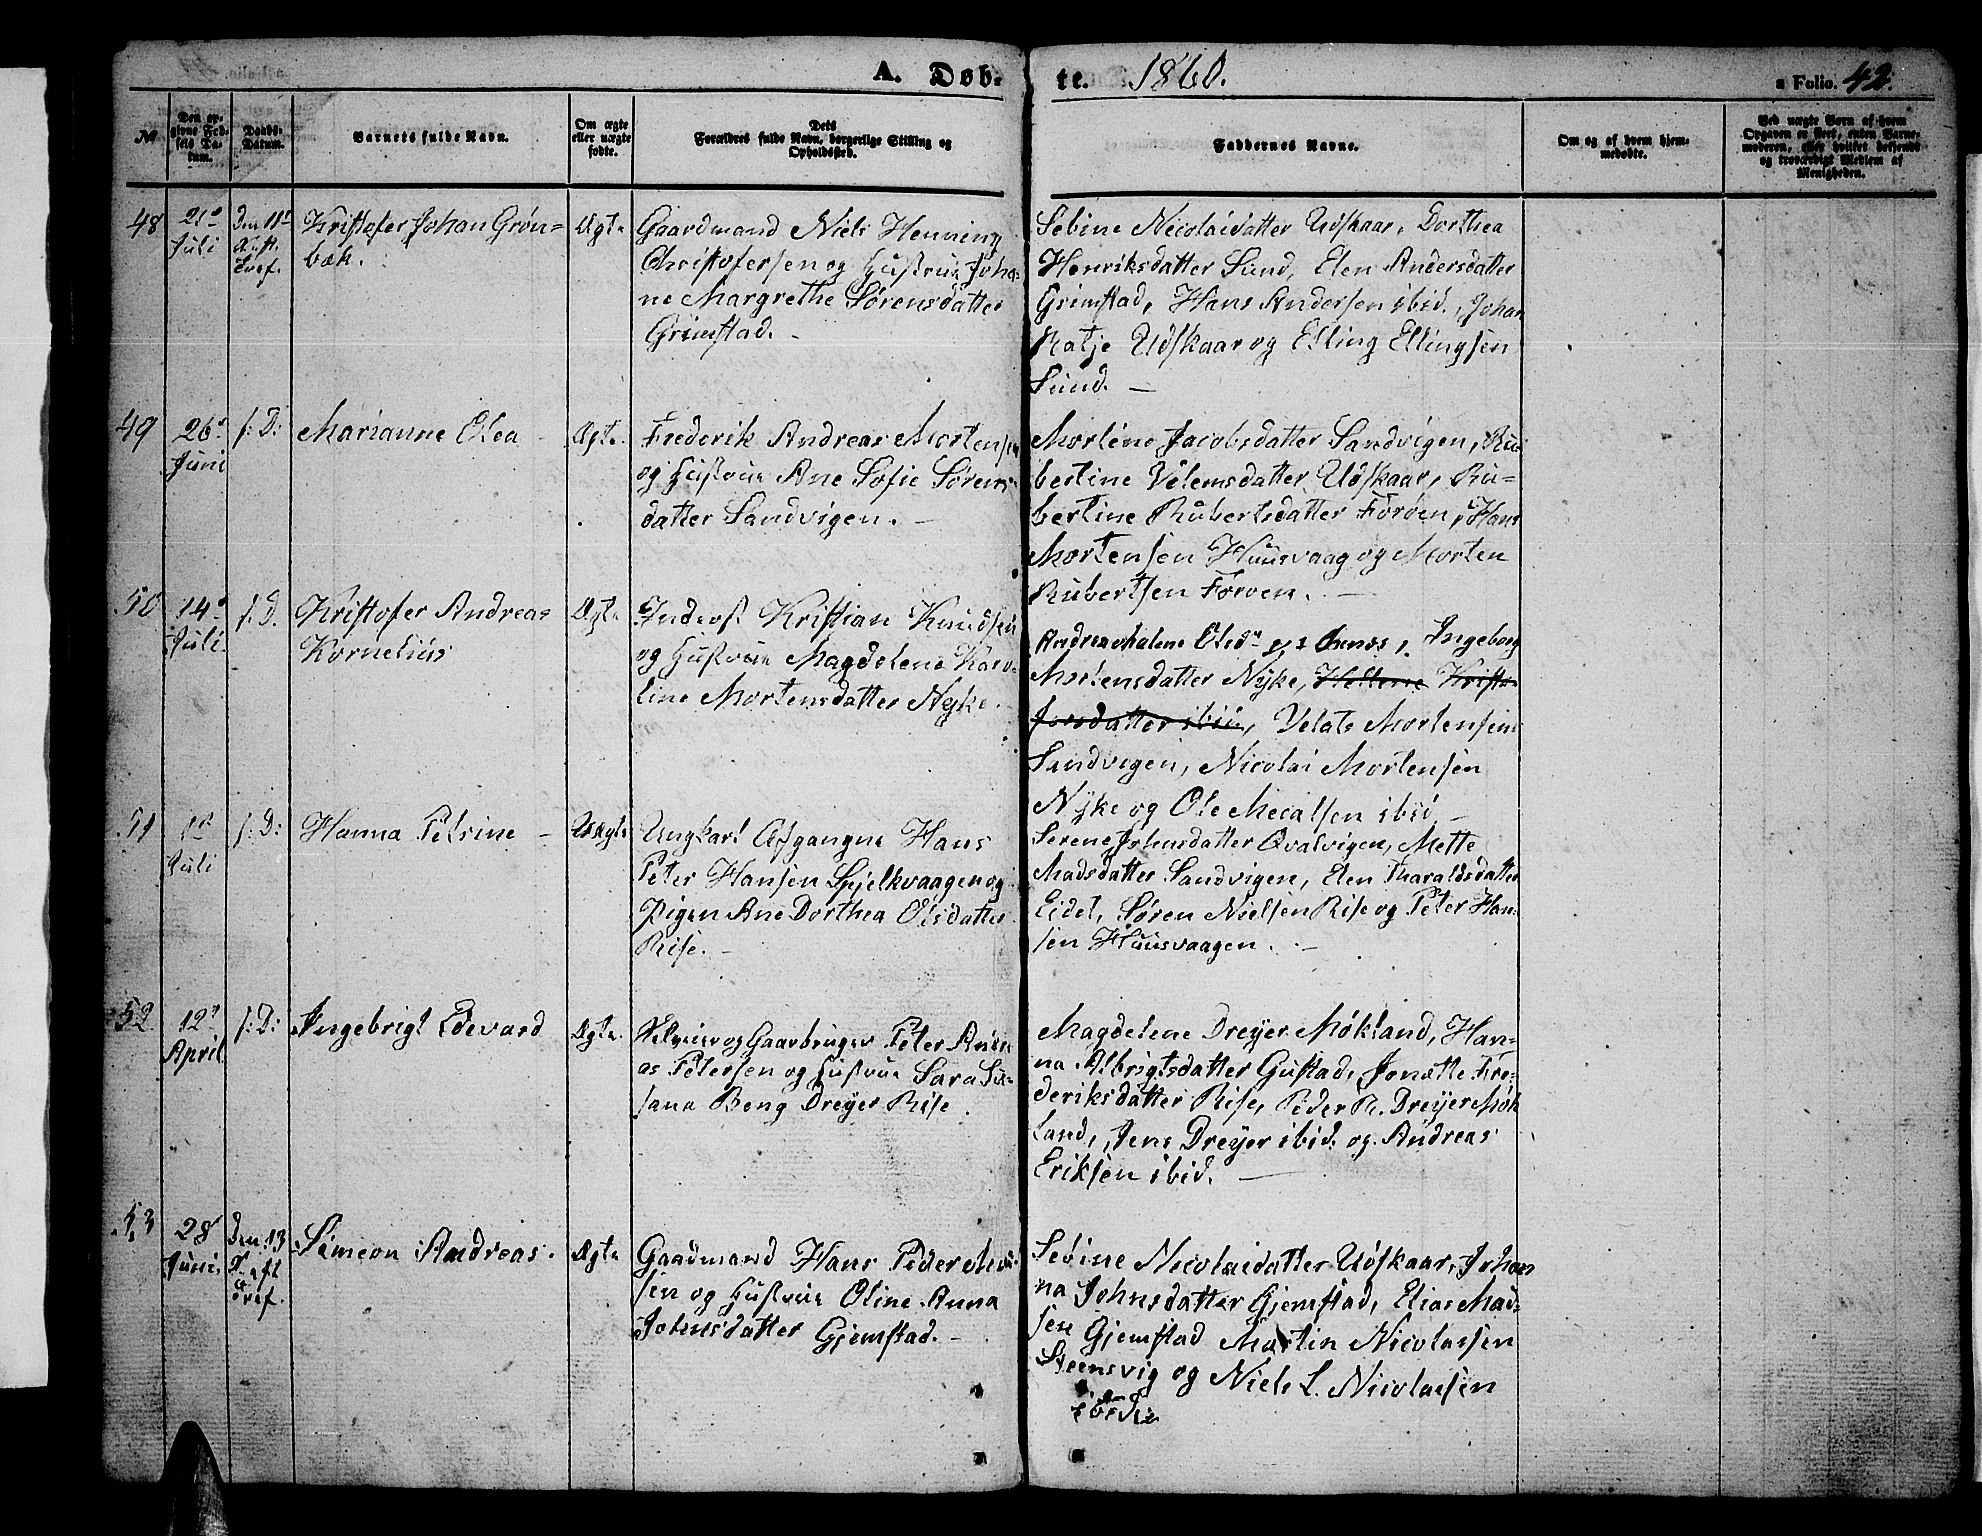 A. Døb-
te. 1860.
Folio. 42.
№
Den opgivne Fødsels Datum.
Daabs-Datum.
Barnets fulde Navn.
Om ægte eller uægte fødte.
Dets Forældres fulde Navn, borgerlige Stilling og Opholdssted.
Faddernes Navne.
Om og af hvem hjemmedøbte.
Ved uægte Børn af hvem Opgaven er skeet, enten Barnemoderen, eller hvilket bekjendt og troværdigt Medlem af Menigheden.
48
21de Juli
Den 11te
Kristofer Johan Grøn-
bæk.
Ægte
Gaardmand Niels Henning
Christofersen og Hustrue Joha-
ne Margrethe Sørensdatter
Grimstad. -
Sebine Nicolaidatter Udskaar, Dorthea
Henriksdatter Sund, Elen Andersdatter
Grimstad, Hans Andersen ibid., Johan
Ratje Udskaar og Elling Ellingsen
Sund. -
49
26de Juni
s: D:
Marianne Elea -
Ægte.
Frederik Andreas Mortensen
og Hustrue Ane Sofie Sørens-
datter Sandvigen. -
Mortine Jacobsdatter Sandvigen, Ru-
bertine Velemsdatter Udskaar, Ru-
bertine Rubertsdatter Forøen, Hans
Mortensen Huusvaag og Morten
Rubertsen Forøen. -
50
14de Juli
s: D.
Kristofer Andreas
Kornelius
Ægte
Inderst Kristian Knudsen
og Hustrue Magdelene Karo-
line Mortensdatter Nyke.
Ingeborg
Mortensdatter Nyke, Hellene Kristo-
forsdatter ibid., Velats Mortensen
Sandvigen, Nicolai Mortensen
Nyke og Ole Mecalsen ibid. -
51
1de Juli
s: D:
Hanna Petrine -
Uægte
Ungkarl Afgangne Hans
Peter Hansen Spjelkvaagen og
Pigen Ane Dorthea Olsdatter
Rise. -
Serene Johnsdatter Qvalvigen, Mette
Madsdatter Sandvigen, Elen Tharaldsdatter
Eidet, Søren Nielsen Rise og Peter Han-
sen Huusvaagen. -
52
12te April
s: D:
Ingebrigt Edevard
Ægte.
og Gaardbruger Peter Andre-
as Petersen og Hustrue Sara Su-
sana Beng Dreyer Rise
Magdelene Dreyer Møkland, Han-
na Albrigtsdatter Gustad, Jonætte Fre-
deriksdatter Rise, Peder R. Dreyer Møk-
land, Jens Dreyer ibid. og Andreas
Eriksen ibid. -
53
28 Juni
Den 13
Simeon Andreas.
Ægte
Gaadmand Hans Peder Mad-
sen og Hustrue Oline Anna
Johnsdatter Gjemstad. -
Sebine Nicolaidatter Udskaar, Johan
na Johnsdatter Gjemstad, Elias Mad-
sen Gjemstad Martin Nicolaisen
Steensvig og Niels L. Nicolaisen